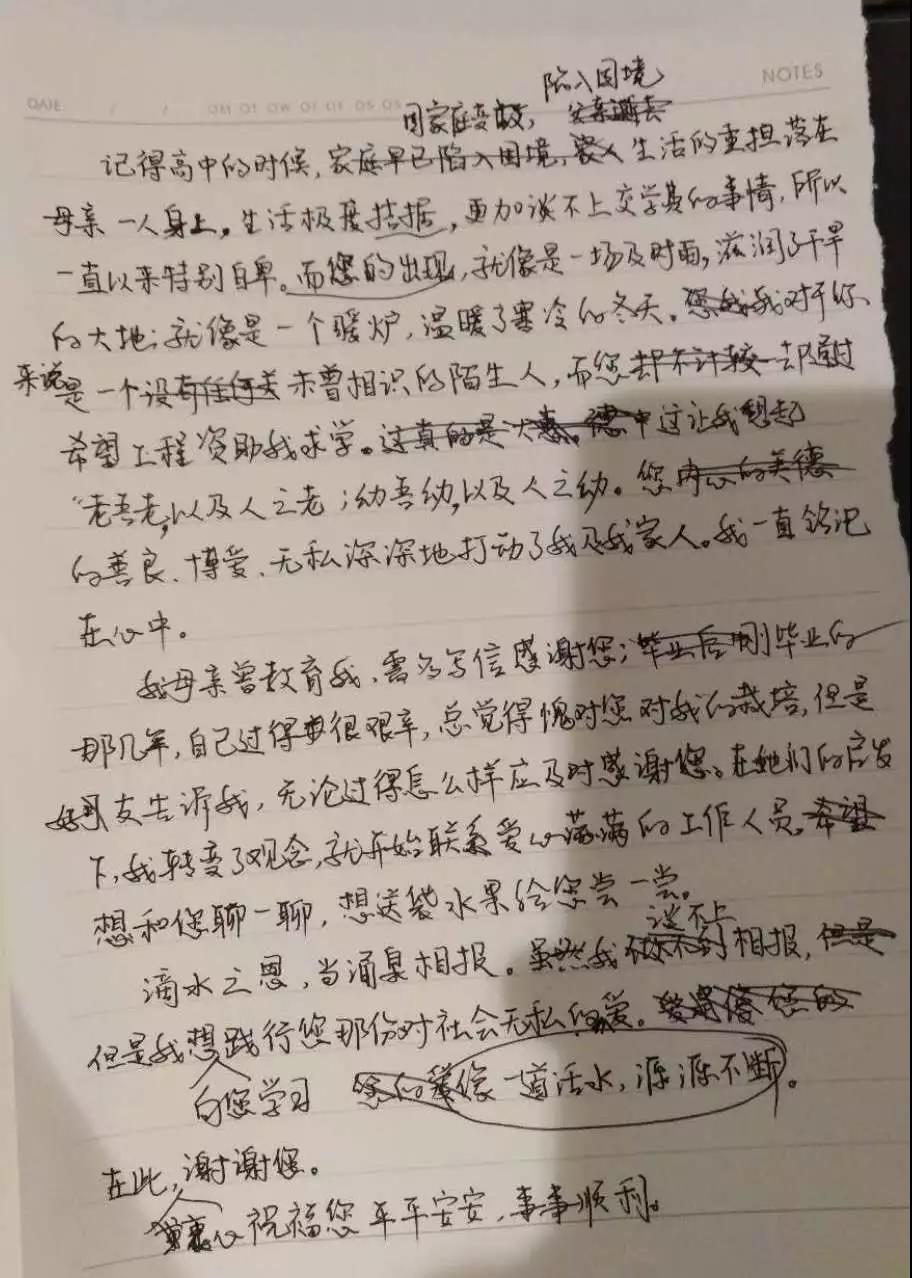 陷入困境
NOTES
DATE / / OM OT OW OT OF OS OS
因家庭变故, 父亲逝去
记得高中的时候,家庭早已陷入困境,家人生活的重担落在
母亲一人身上。生活极度拮据,更加谈不上交学费的事情,所以
一直以来特别自卑。而您的出现,就像是一场及时雨,滋润了干旱
的大地;就像是一个暖炉,温暖了寒冷的冬天。您我我对于你
来说是一个没有任何关未曾相识的陌生人,而您却不计较去却通过
希望工程资助我求学。这真的是大爱。德中这让我想起
“老吾老,以及人之老;幼吾幼,以及人之幼。您内心的美德
的善良、博爱、无私深深地打动了我及我家人。我一直铭记
在心中。
我母亲曾教育我,需多写信感谢您;毕业后刚毕业的
那几年,自己过得很艰辛,总觉得愧对您对我的栽培,但是
好朋友告诉我,无论过得怎么样应及时感谢您。在她们的启发
下,我转变了观念,就开始联系爱心满满的工作人员。希望
想和您聊一聊,想送袋水果给您尝一尝。
谈不上
滴水之恩,当涌泉相报。虽然我做不到相报,但是
但是我想践行您那份对社会无私的爱。
向您学习 您的爱像一道活水,源源不断。
在此,谢谢您。
衷心祝福您平平安安,事事顺利。